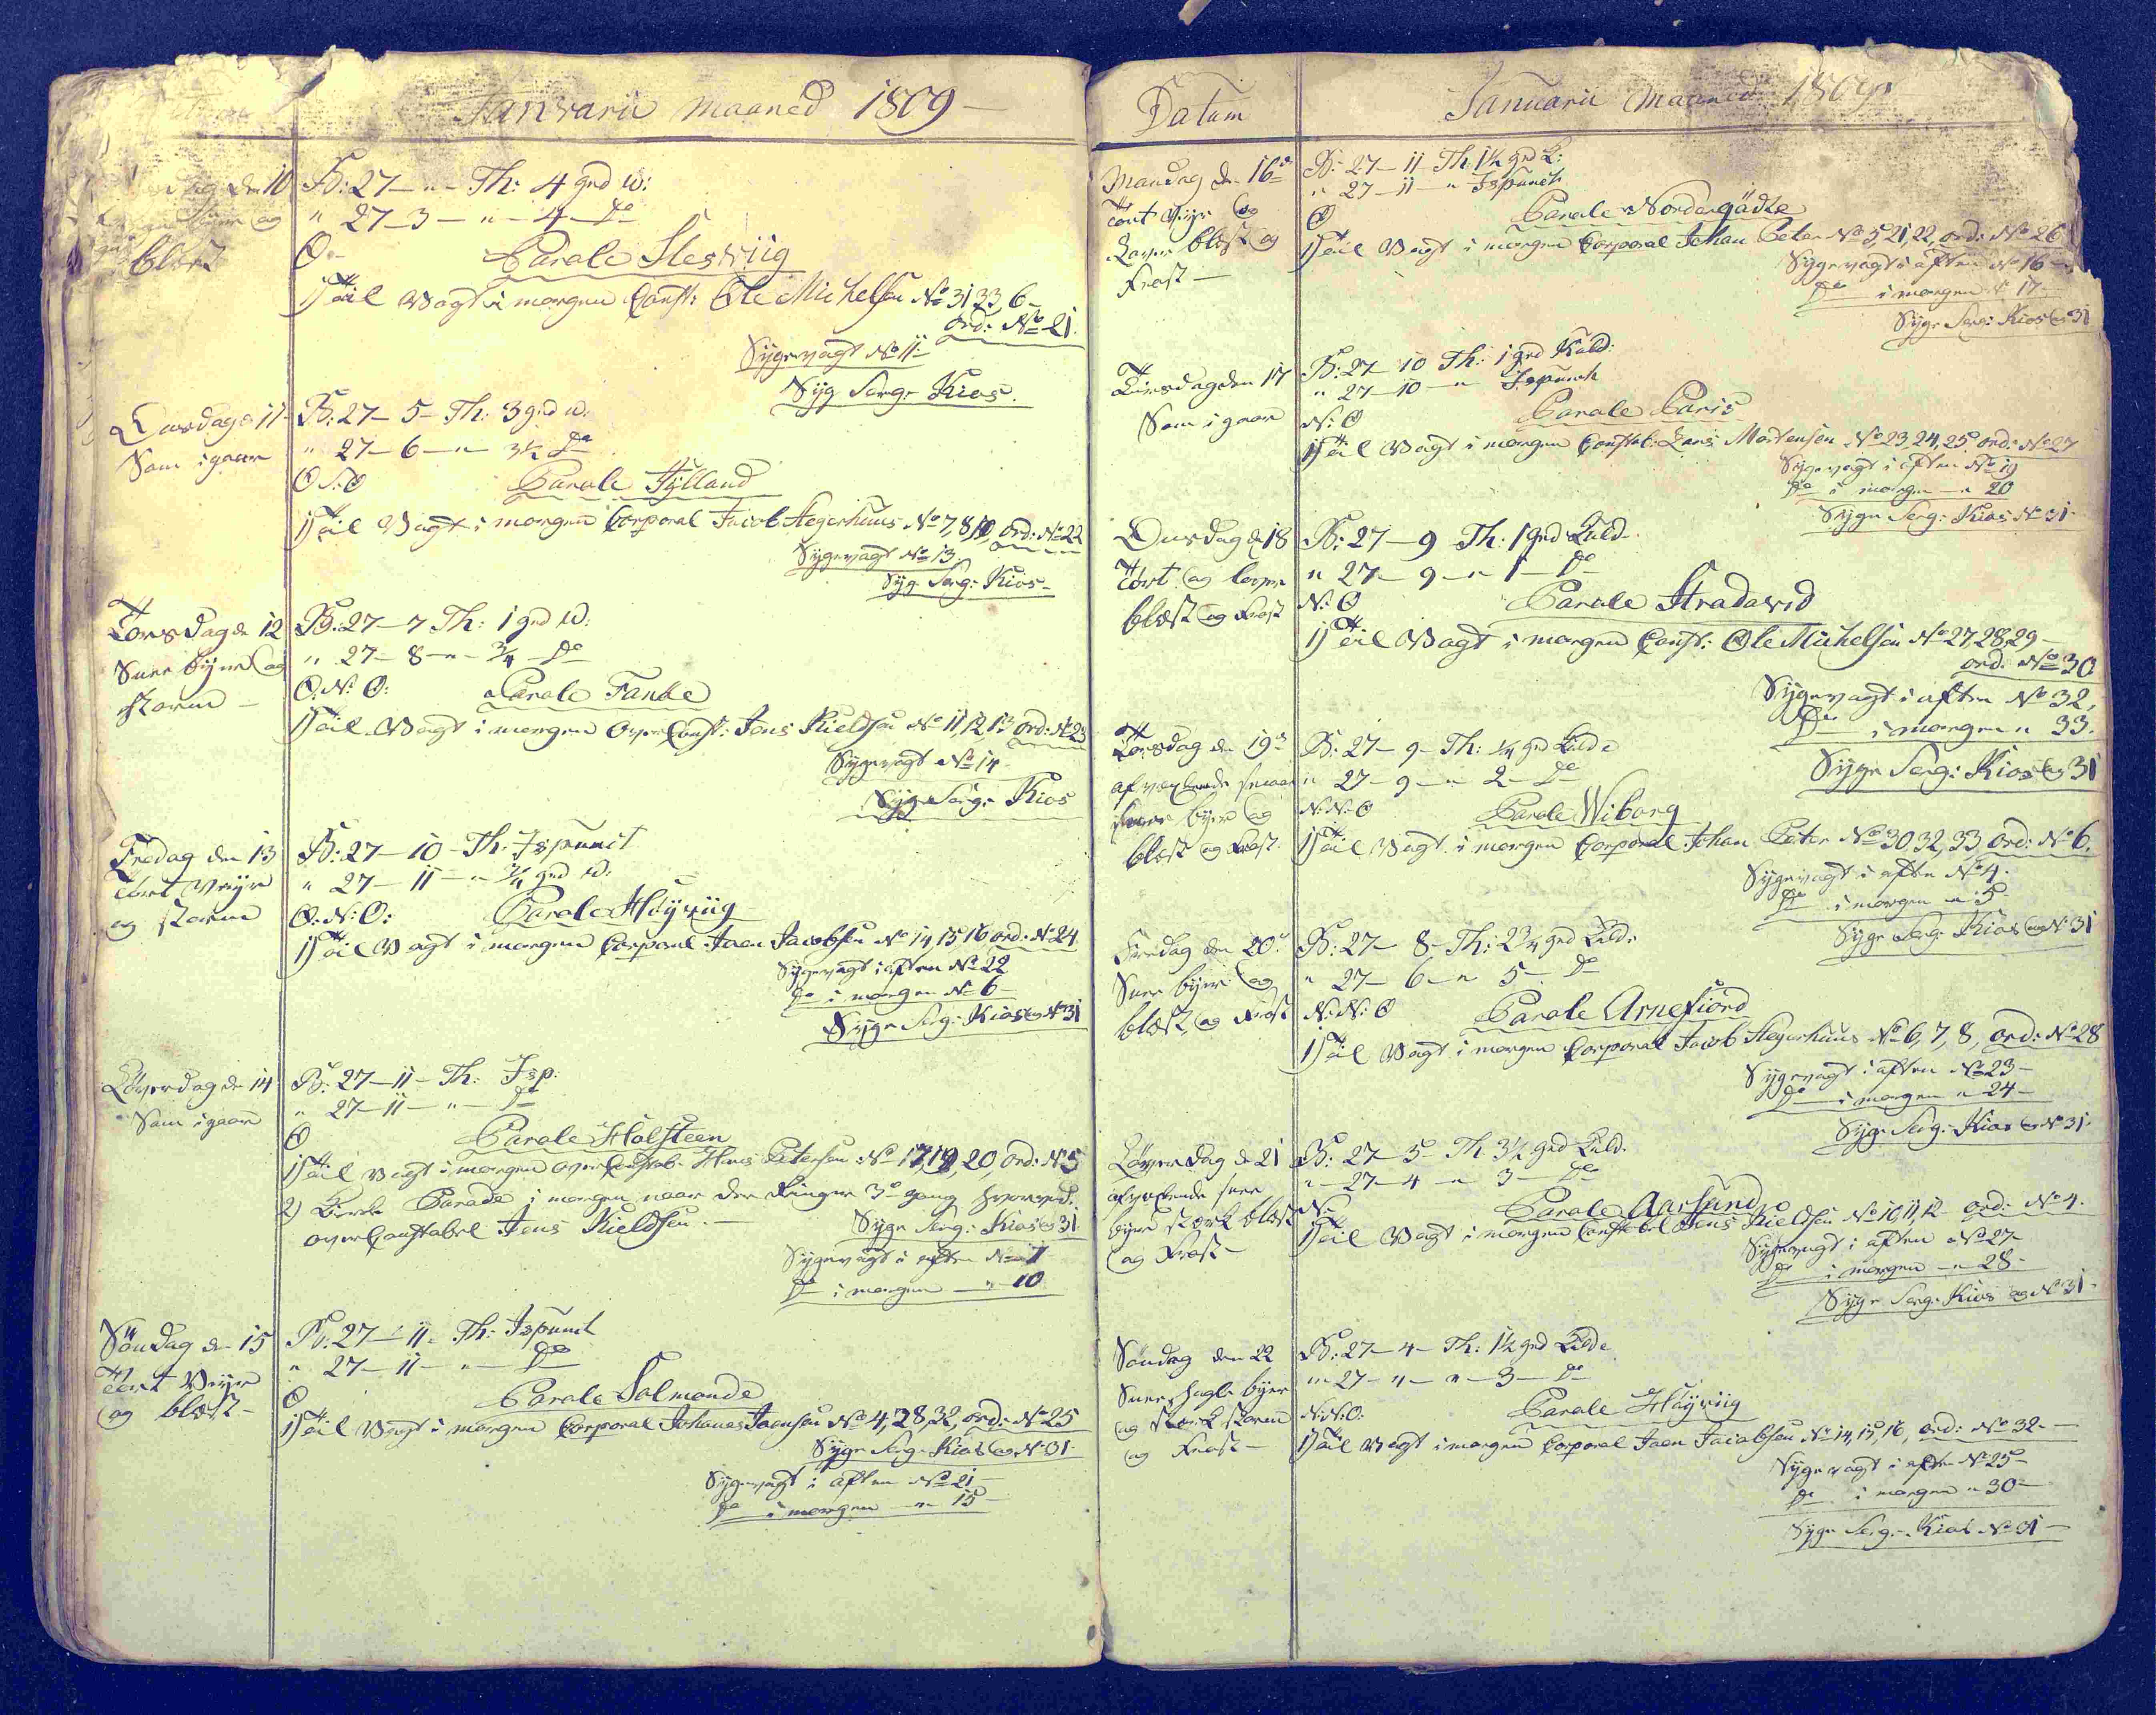 Januarii Maaned 1809
dag den 10
og
blæst
B: 27 — " — Th: 4 grd w:
" 27 — 3 — " — 4 — Do
O.
Parole Slesviig
1) Til Vagt i morgen Const: Ole Michelsen No 31 33 6 —
ord: No 21.
Sygevagt No 11 —
Syg Serg: Kios.
Onsdag d 11
Som igaar
B: 27 — 5 — Th: 3 grd w:
" 27 — 6 — " — 3½ Do
O S: O
Parole Jylland
1) Til Vagt i morgen Corporal Jacob Hegerhuus No 7, 8, 10, ord: No 22
Sygevagt No 13.
Syg Serg: Kios —
Torsdag d 12
Snee byer og
storm —
B: 27 — 7 Th: 1 grd w:
" 27 — 8 — " — ¾ — Do
O: N: O:
Parole Tanke
1) Til Vagt i morgen Over Const: Jens Kieldsen No 11, 12, 13 ord: No 23
Sygevagt No 14
Syge Serg: Kios
Fredag den 13
tört Veyr
og storm
B: 27 — 10 — Th: Ispunct
" 27 — 11 — " ¼ grd w:
O: N: O:
Parole Höyviig
1) Til Vagt i morgen Corporal Joen Jacobsen No 14 15 16 ord: No 24
Sygevagt i aften No 22
Do i morgen No 6 —
Syge Serg: Kios og No 31
Löverdag d 14
Som igaar
B: 27 — 11 — Th: Isp:
" 27 — 11 — " — Do
O
Parole Holsteen
1) Til Vagt i morgen over Constab: Hans Petersen No 17, 19, 20, ord: No 5
2) Kirke Parade i morgen naar der Ringer 3de gang hvorved
over Constabel Jens Kieldsen. —
Syge Serg: Kios og 31
Sygevagt i aften No 7
Do i morgen — " 10
Söndag d 15
Tört Veyr
og blæst —
B: 27 — 11 — Th: Ispunct
" 27 — 11 — " — Do
O
Parole Salmonde
1) Til Vagt i morgen Corporal Johanes Joensen No 4, 28, 32, ord: No 25
Syge Serg: Kios og No 31 —
Sygevagt i aften No 21 —
Do i morgen — " 15 —
Datum
Januarii Maaned 1809
Mandag d 16d
Tört Veyr og
blæst og
Frost —
B: 27 — 11 — Th: 1½ grd K:
" 27 — 11 — " Ispunct
O
Parole Nordergädte
1) Til Vagt i morgen Corporal Johan Peter No 5, 21, 22, ord: No 26
Sygevagt i aften No 16 —
Do i morgen No 17 —
Syge Serg: Kios og 31
Tirsdag den 17
Som i gaar
B: 27 — 10 Th: 1 grd Kuld:
" 27 — 10 — " Ispunct
N: O
Parole Paris
1) Til Vagt i morgen Constab: Lars Mortensen No 23, 24, 25, ord: No 27
Sygevagt i aften No 19
Do i morgen — " 20
Syge Serg: Kios No 31 —
Onsdag d 18
Tört og
blæst og Frost
B: 27 — 9 Th: 1 grd Kuld.
" 27 — 9 — " 1 — Do
N: O
Parole Stradavid
1) Til Vagt i morgen Const: Ole Michelsen No 27, 28, 29 —
ord: No 30
Sygevagt i aften No 32,
Do i morgen " 33.
Syge Serg: Kios og 31
Torsdag den 19d
afvexlende smaa
snee byer og
blæst og Frost.
B: 27 — 9 — Th: ¼ grd Kulde
" 27 — 9 — " 2 — Do
N: N: O
Parole Wiborg
1) Til Vagt i morgen Corporal Johan Peter No 30 32, 33, ord: No 6.
Sygevagt i afte No 4.
Do i morgen " 5
Syge Serg: Kios og No 31
Fredag den 20d
Snee byer og
blæst og Frost
B: 27 — 8 — Th: 2¾ grd Kuld:
" 27 — 6 — " 5 — Do
N: N: O
Parole Arnefiord
1) Til Vagt i morgen Corporal Jacob Hegerhuus No 6, 7, 8, ord: No 28
Sygevagt i aften No 23 —
Do i morgen " 24 —
Syge Serg: Kios og No 31.
Löverdag d 21
afvexlende snee
byer stærk blæst
og Frost —
B: 27 — 5 — Th 3½ grd Kuld.
" — 27 — 4 — " 3 — Do
N:
Parole Aarsund
1) Til Vagt i morgen Constabel Jens Kieldsen No 10, 11, 12 ord: No 4.
Sygevagt i aften No 27 —
Do i morgen — " 28 —
Syge Serg: Kios og No 31 —
Söndag den 22
Snee, hagle byer
og stærk storm
og Frost —
B: 27 — 4 — Th: 1½ grd Kulde
" 27 — 4 — " — 3 — Do
N: N: O:
Parole Höyviig
1) Til Vagt i morgen Corporal Joen Jacobsen No 14, 15, 16, ord: No 32 —
Sygevagt i afte No 25 —
Do i morgen " 30 —
Syge Serg: Kios No 31 —